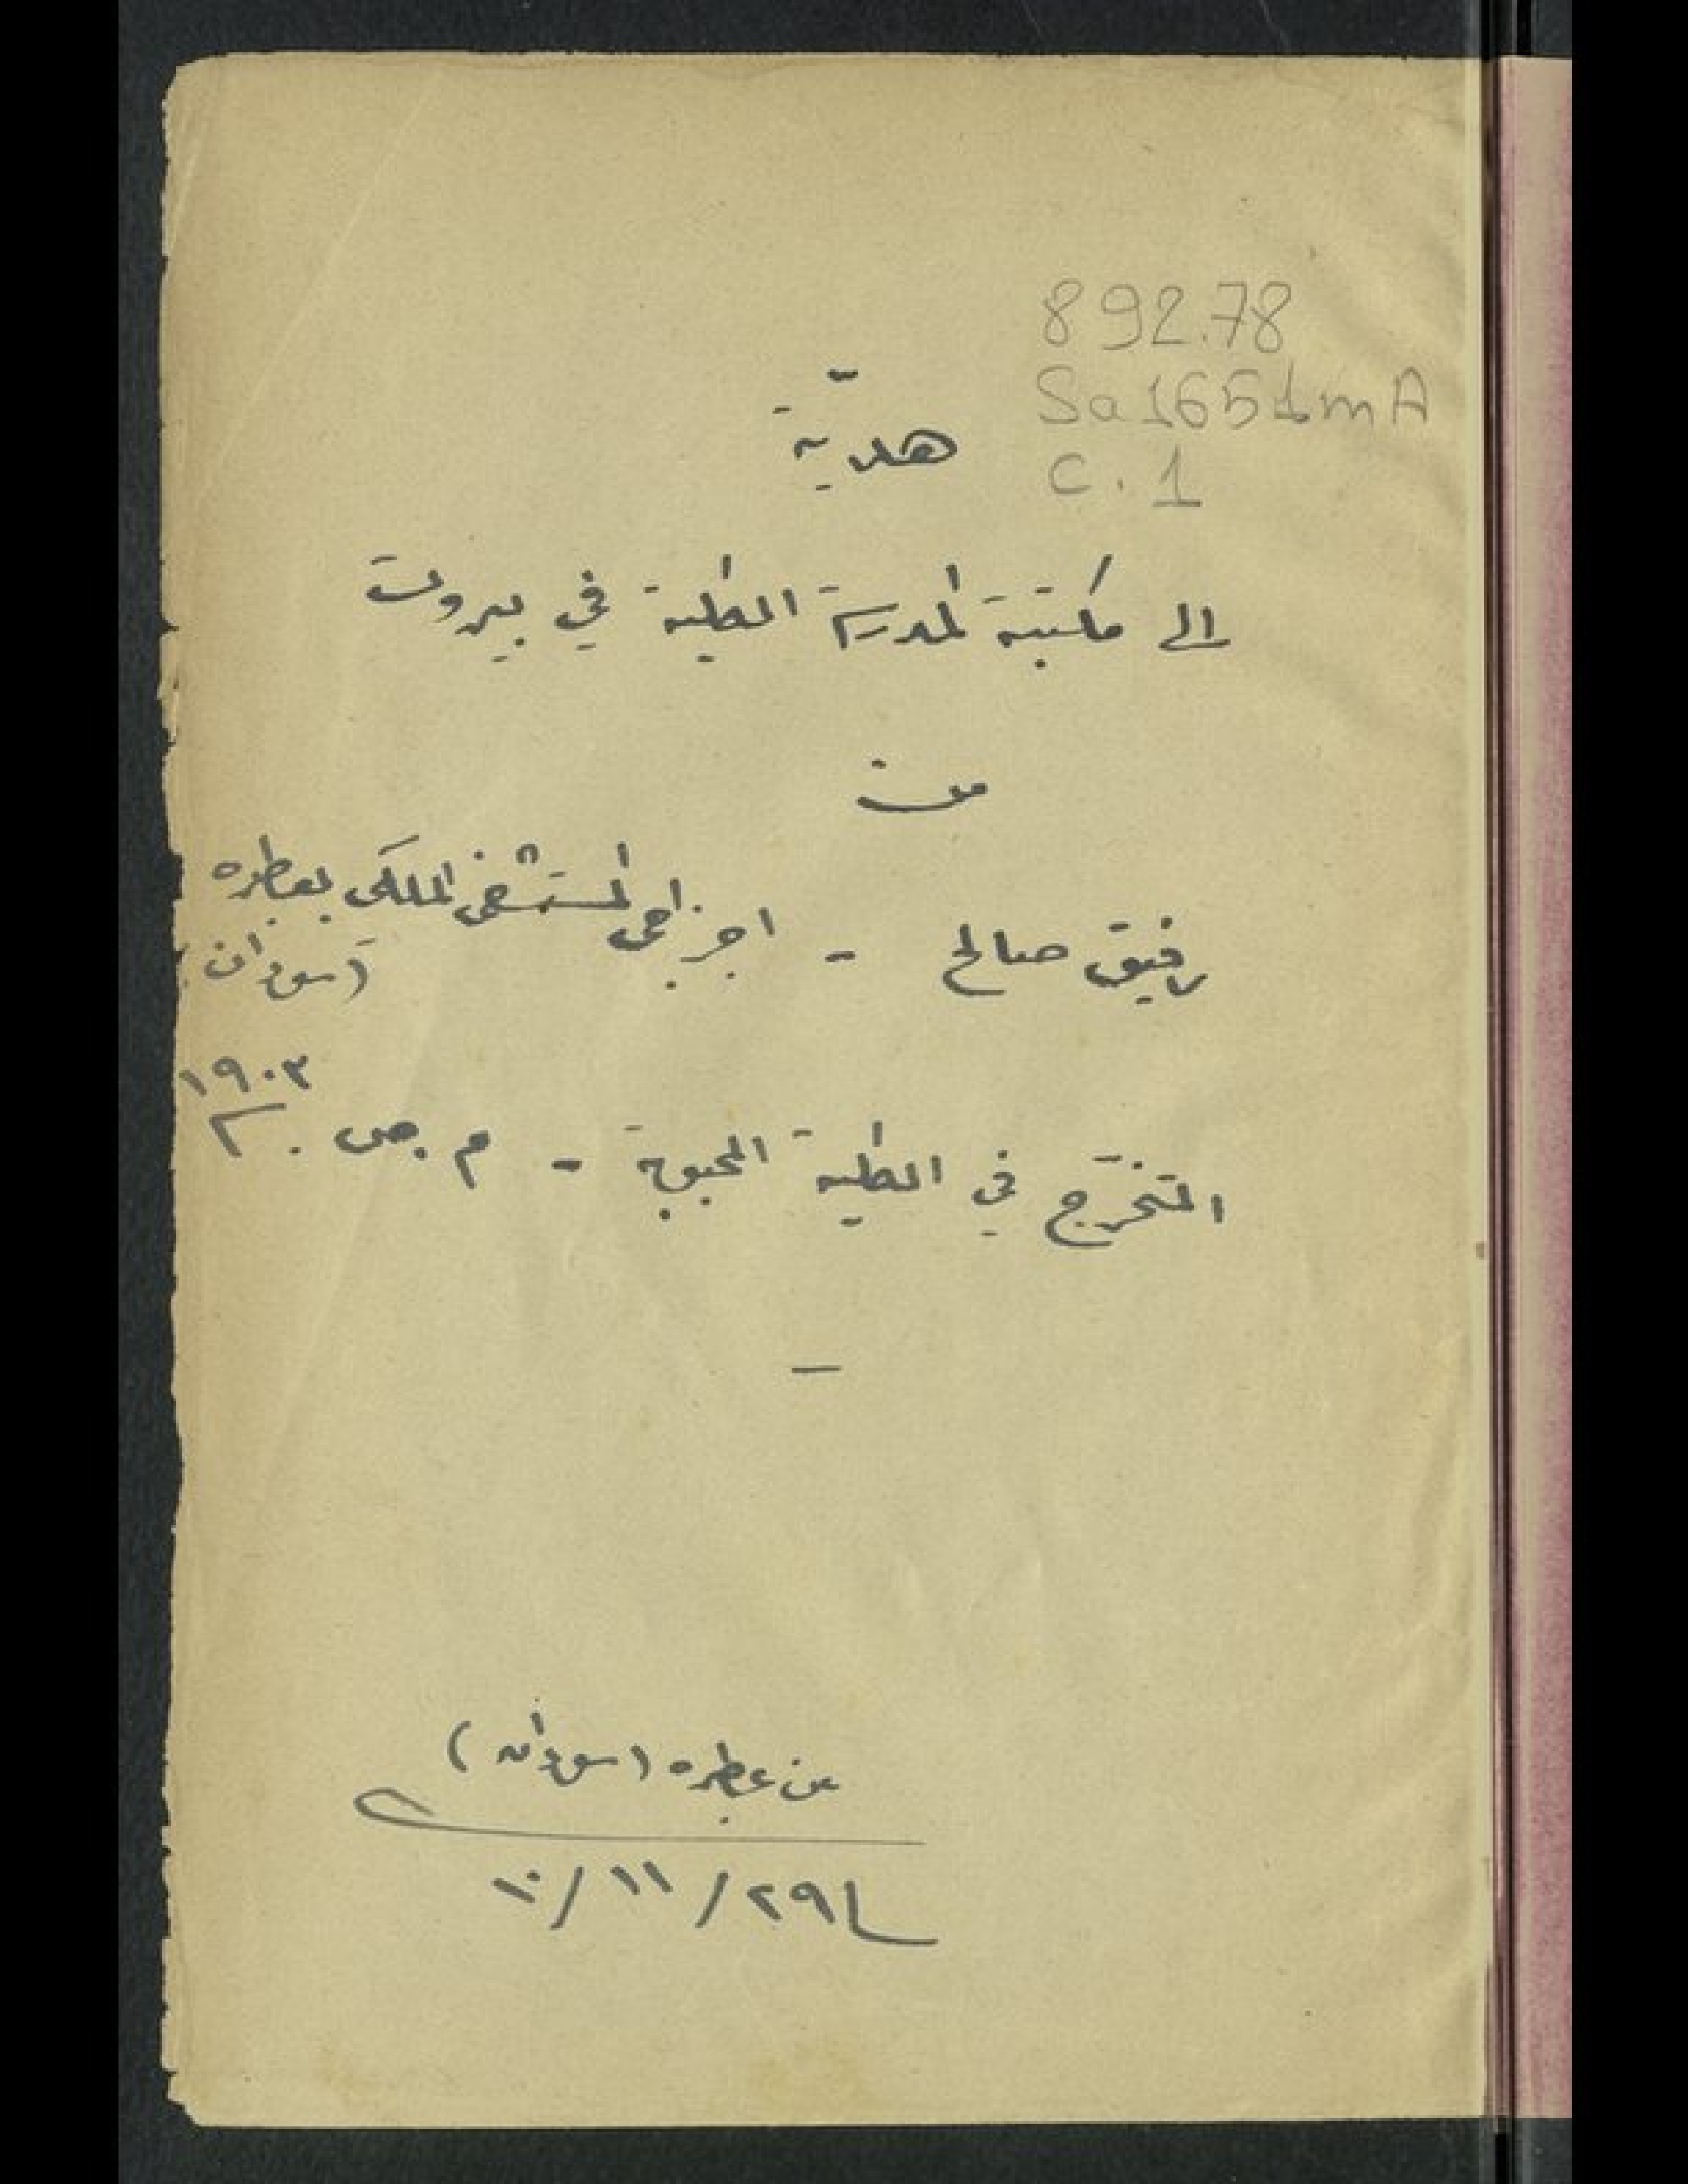 892.78
Sa1651mA
c.1
هديّة
الى مكتبة المدرسة الكلية في بيروت
من
رفيق صالح - اجزاجي المستشفى الملكي بعطبره
(سودان)
المتخرّج في الكلية المحبوبة - م.ص. سنة ١٩٠٣
عن عطبره (سودان)
٢٩ / ١١ / ١٠